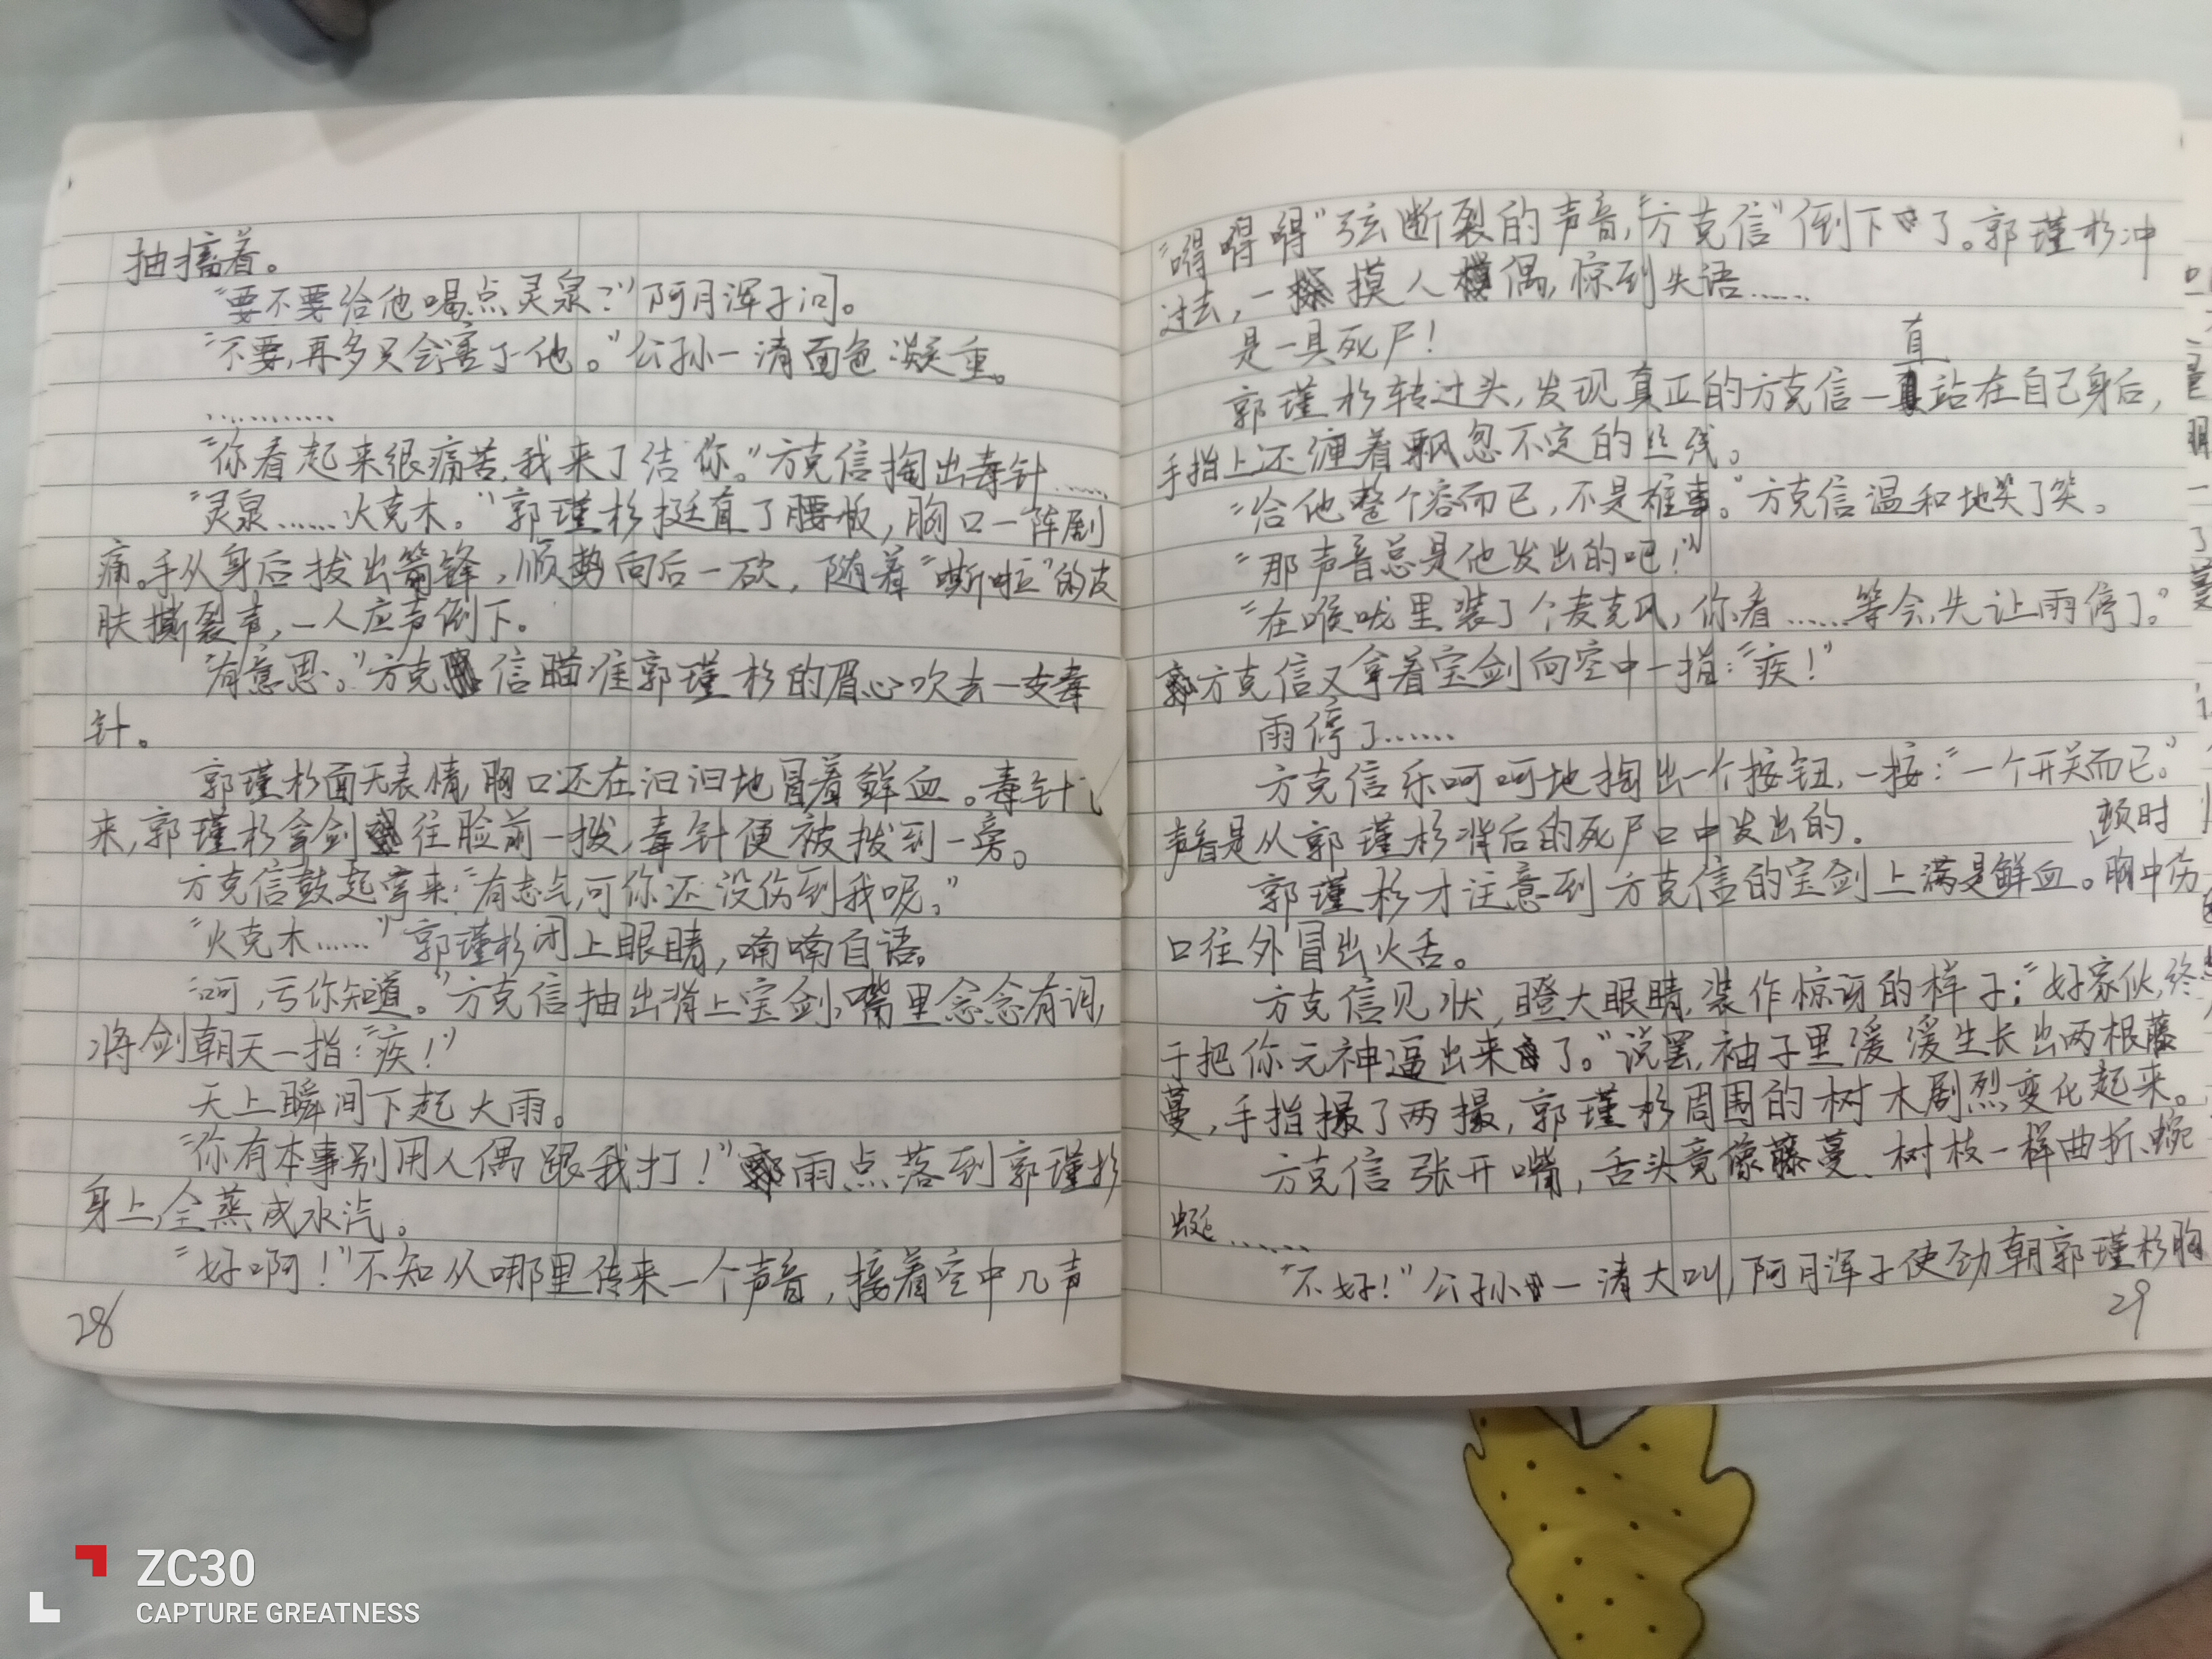 抽搐着。
“要不要给他喝点灵泉?”阿月浑子问。
“不要,再多只会害了他。”公孙一清面色凝重。
…………
“你看起来很痛苦,我来了结你。”方克信掏出毒针……
“灵泉……火克木。”郭瑾杉挺直了腰板,胸口一阵剧
痛。手从身后拔出箭锋,顺势向后一砍,随着“嘶啦”的皮
肤撕裂声,一人应声倒下。
“有意思。”方克信瞄准郭瑾杉的眉心吹去一支毒
针。
郭瑾杉面无表情,胸口还在汩汩地冒着鲜血。毒针
来,郭瑾杉拿剑往脸前一拨,毒针便被拨到一旁。
方克信鼓起掌来:“有志气,可你还没伤到我呢。”
“火克木……”郭瑾杉闭上眼睛,喃喃自语。
“呵,亏你知道。”方克信抽出背上宝剑,嘴里念念有词,
将剑朝天一指:“疾!”
天上瞬间下起大雨。
“你有本事别用人偶跟我打!”雨点落到郭瑾杉
身上,全蒸成水汽。
“好啊!”不知从哪里传来一个声音,接着空中几声
28
“嘚嘚嘚”弦断裂的声音,“方克信”倒下了。郭瑾杉冲
过去,一摸人偶,惊到失语……
是一具死尸!
郭瑾杉转过头,发现真正的方克信一直站在自己身后,
手指上还缠着飘忽不定的丝线。
“给他整个容而已,不是难事。”方克信温和地笑了笑。
“那声音总是他发出的吧!”
“在喉咙里装了个麦克风,你看……等会,先让雨停了。”
方克信又拿着宝剑向空中一指:“疾!”
雨停了……
方克信乐呵呵地掏出一个按钮,一按:“一个开关而已。”
声音是从郭瑾杉背后的死尸口中发出的。
郭瑾杉才注意到方克信的宝剑上满是鲜血。顿时胸中伤
口往外冒出火舌。
方克信见状,瞪大眼睛,装作惊讶的样子:“好家伙,终
于把你元神逼出来了。”说罢,袖子里缓缓生长出两根藤
蔓,手指撮了两撮,郭瑾杉周围的树木剧烈变化起来。
方克信张开嘴,舌头竟像藤蔓、树枝一样曲折、蜿
蜒……
“不好!”公孙一清大叫,阿月浑子使劲朝郭瑾杉胸
29
ZC30
CAPTURE GREATNESS